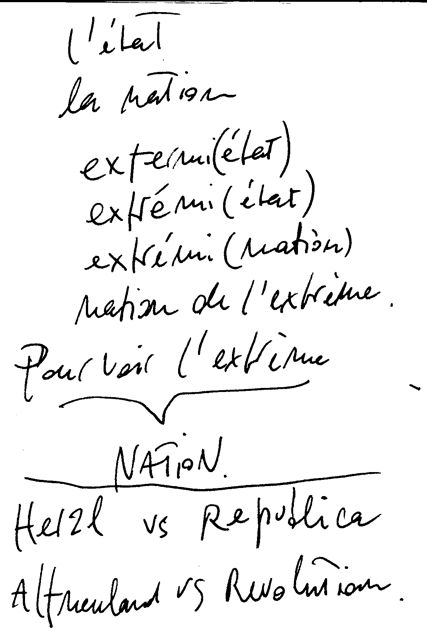 l'état
la nation
extermi(état)
extrémi(état)
extrémi(nation)
nation de l'extrême.
Pour voir l'extrême
NATION.
Herzl vs Republica
Altneuland vs Revolution.